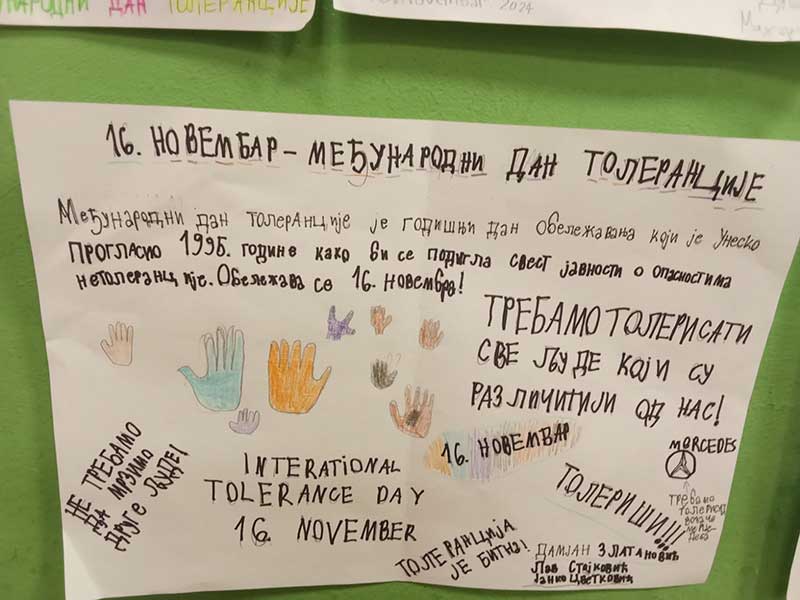 НАРОДНИ ДАН ТОЛЕРАНЦИЈЕ
2024
16. НОВЕМБАР – МЕЂУНАРОДНИ ДАН ТОЛЕРАНЦИЈЕ
Међународни дан толеранције је годишњи дан обележавања који је Унеско
прогласио 1995. године како би се подигла свест јавности о опасностима
нетолеранције. Обележава се 16. новембра!
ТРЕБАМО ТОЛЕРИСАТИ
СВЕ ЉУДЕ КОЈИ СУ
РАЗЛИЧИТИЈИ ОД НАС!
16. НОВЕМБАР
MORCEDES
ТОЛЕРИШИ!!!
Требамо
возаче
НЕ ТРЕБАМО
ДА МРЗИМО
ДРУГЕ ЉУДЕ!
INTERATIONAL
TOLERANCE DAY
16. NOVEMBER
ТОЛЕРАНЦИЈА
ЈЕ БИТНА!
ДАМЈАН ЗЛАТАНОВИЋ
Лав Стајковић
Јанко Цветковић